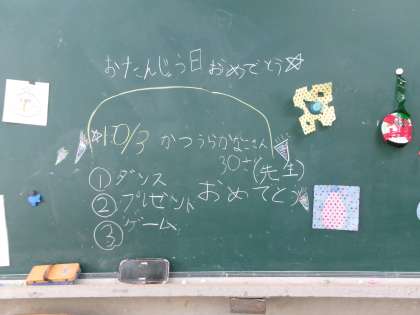 おたんじょう日おめでとう☆
☆10/3 かつうらかなこさん
30さい(先生)
おめでとう
①ダンス
②プレゼント
③ゲーム